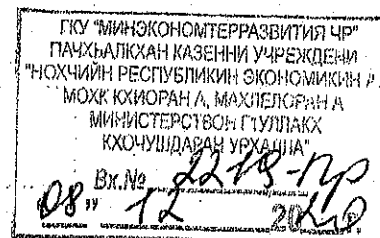 ГКУ "МИНЭКОНОМТЕРРАЗВИТИЯ ЧР"
ПАЧХЬАЛКХАН КАЗЕННИ УЧРЕЖДЕНИ
"НОХЧИЙН РЕСПУБЛИКИН ЭКОНОМИКИН А
МОХК КХИОРАН А, МАХЛЕЛОРАН А
МИНИСТЕРСТВОН ГІУЛЛАКХ
КХОЧУШДАРАН УРХАЛЛА"
Вх.№ 2219-пр
"08" 12 2020 г.